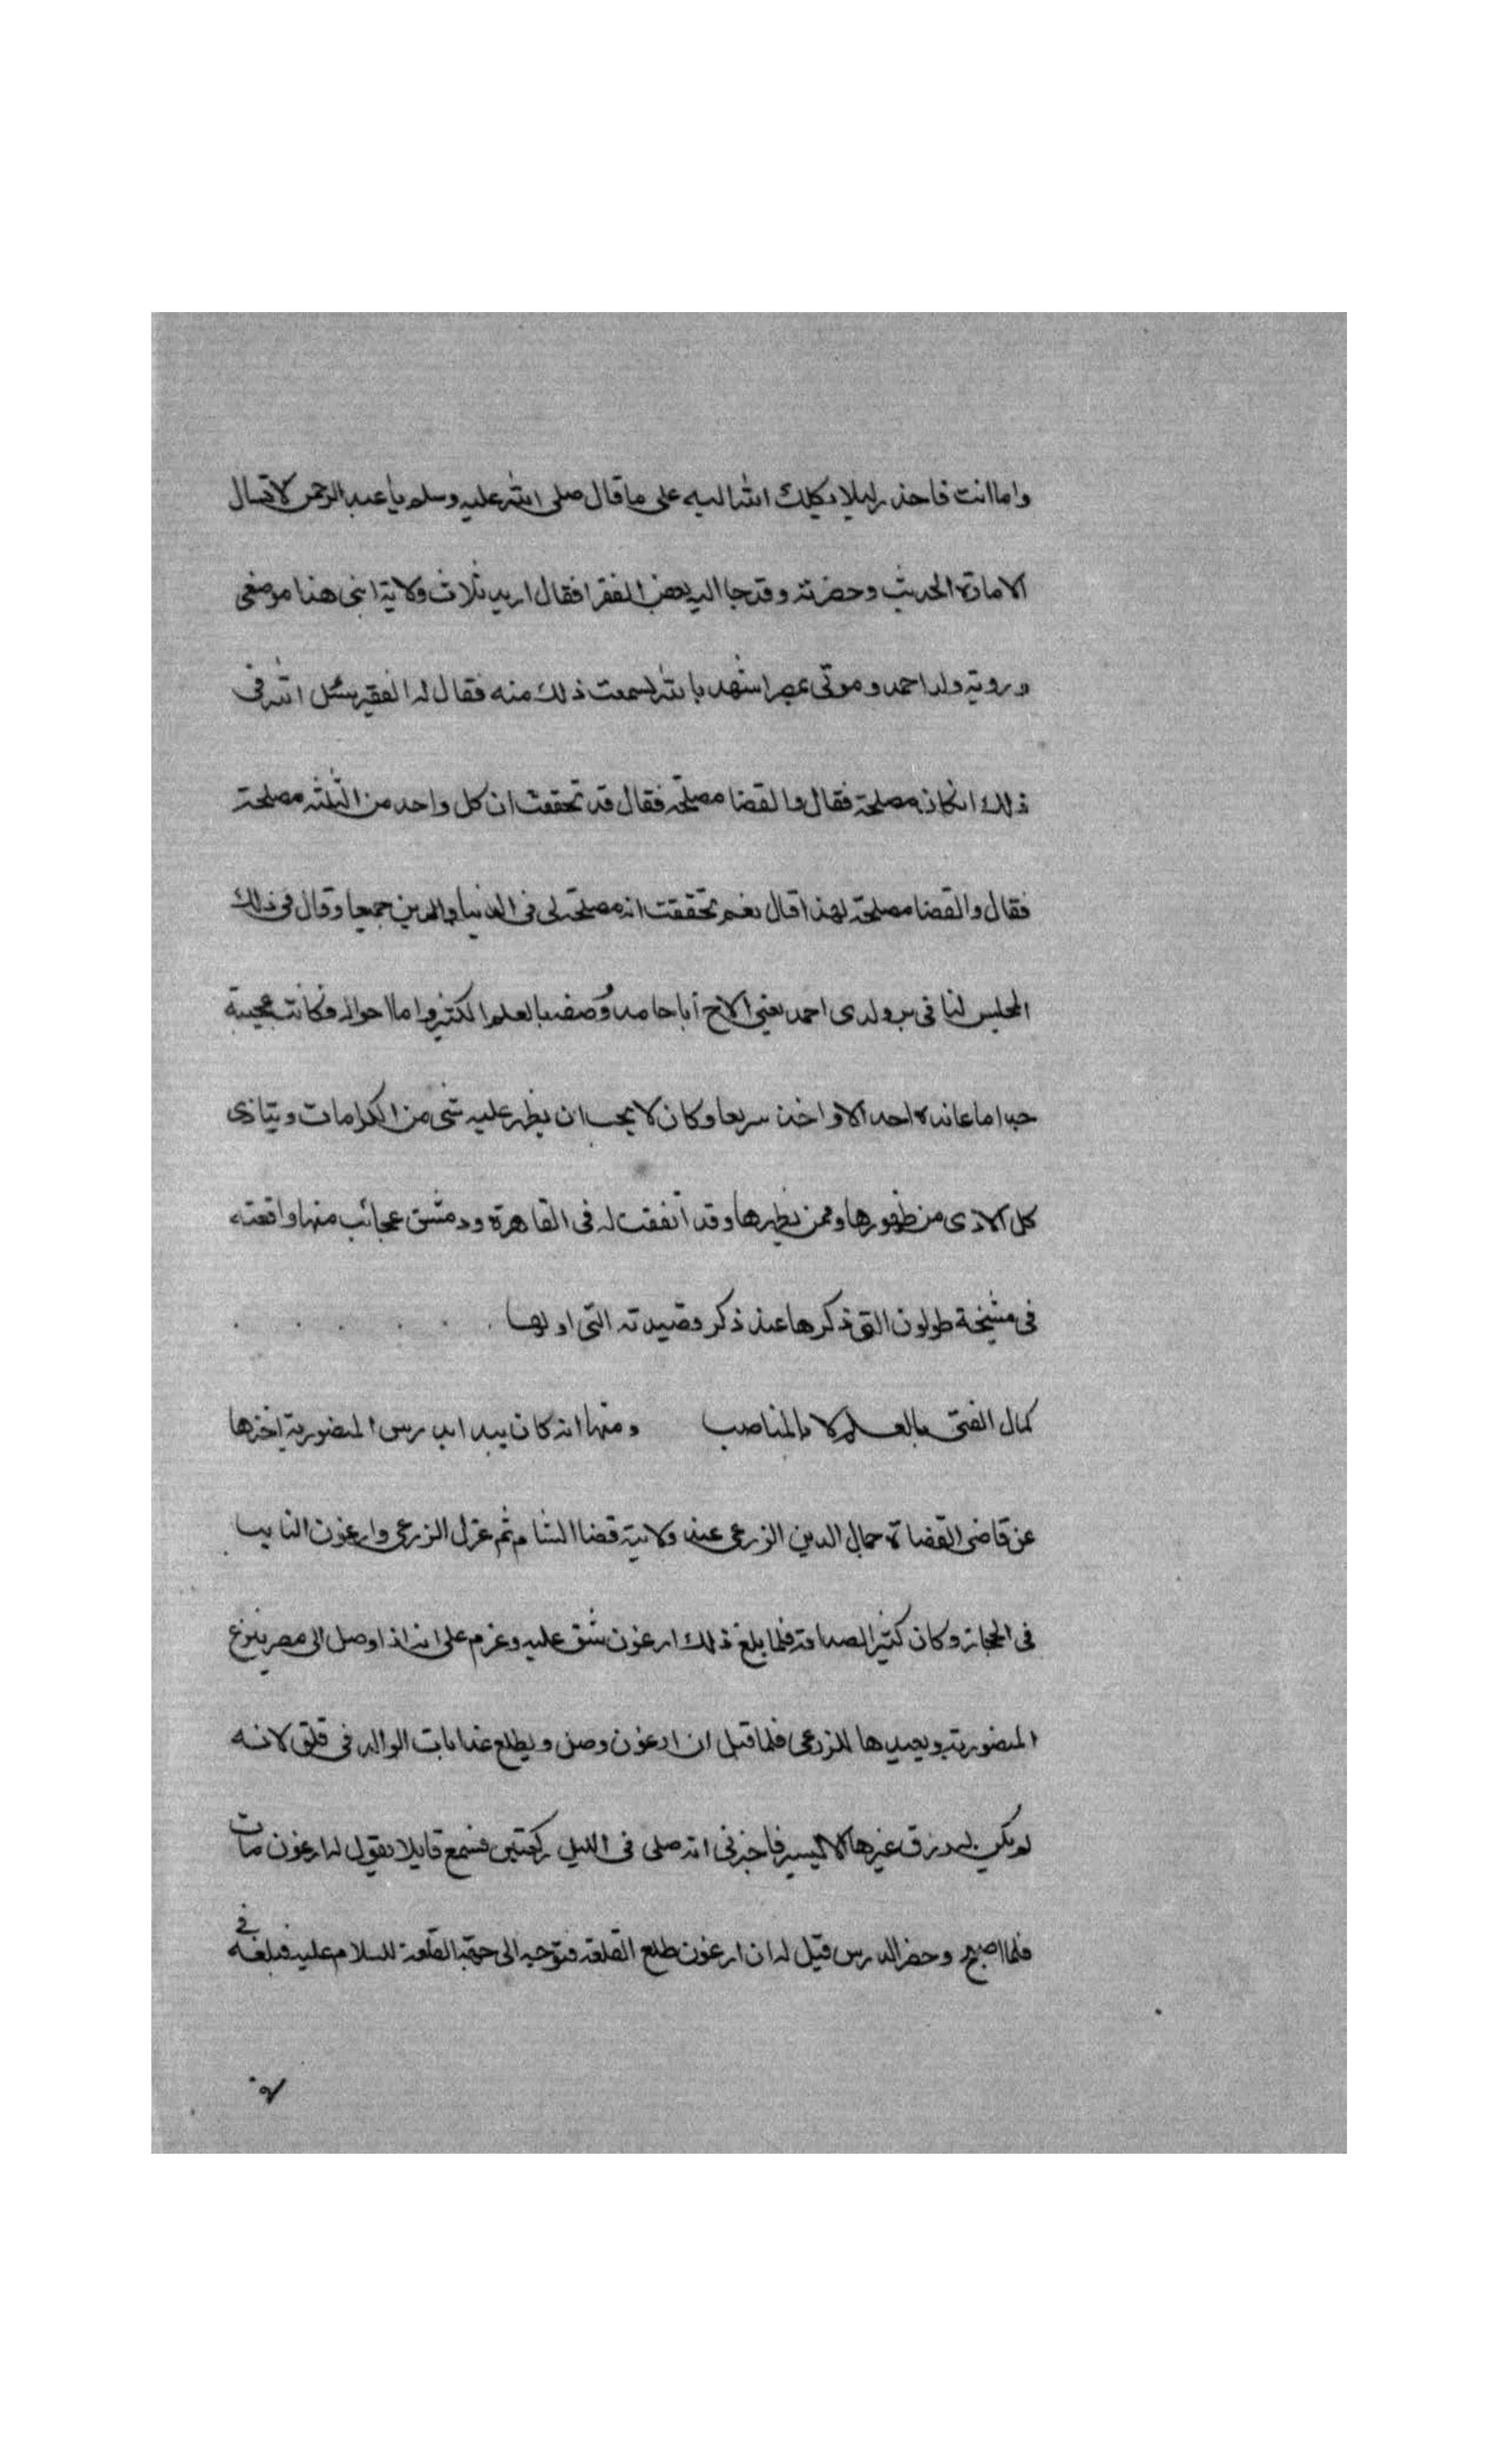 واما انت فاحذر ليلا يكلك الله اليه على ما قال صلى الله عليه وسلم يا عبد الرحمن لا تسال
الامارة الحديث وحضرته وقد جا اليه بعض الفقرا فقال اريد ثلاث ولاية ابنى هذا موضعى
وروية ولد احمد وموتى بمصر اشهد بالله لسمعت ذلك منه فقال له الفقير سئل الله فى
ذلك ان كان مصلحة فقال والقضا مصلحة فقال قد تحققت ان كل واحد من الثلثه مصلحة
فقال والقضا مصلحة لهذا قال نعم تحققت انه مصلحة لى فى الدنيا والدين جميعا وقال فى ذلك
المجلس لنا فى ولدى احمد يعنى الاخ أبا حامد وُصف بالعلم الكثير واما احواله فكانت عجيبة
جدا ما عانده احد الا واخذ سريعا وكان لا يحب ان يظهر عليه شى من الكرامات ويتاذى
كل الاذى من ظهورها وممن يظهرها وقد اتفقت له فى القاهرة ودمشق عجائب منها واقعته
فى مشيخة طولون التى ذكرها عند ذكر قصيدته التى اولها
كمال الفتى بالعلم لا بالمناصب ومنها انه كان بيده تدريس المنصورية اخذها
عن قاضى القضاة جمال الدين الزرعى عند ولاية قضا الشام ثم عزل الزرعى وارغون النايب
فى الحجاز وكان كثير الصداقة فلما بلغ ذلك ارغون شق عليه وعزم على انه اذا وصل الى مصر ينزع
المنصورية ويعيدها للزرعى فلما قيل ان ارغون وصل ويطلع غدا بات الوالد فى قلق لانه
لم يكن له رزق غيرها الا اليسير فاخبرنى انه صلى فى الليل ركعتين فسمع قايلا يقول له ارغون مات
فلما اصبح وحضر الدرس قيل له ان ارغون طلع القلعة فتوجه الى جهة القلعة للسلام عليه فبلغه فى